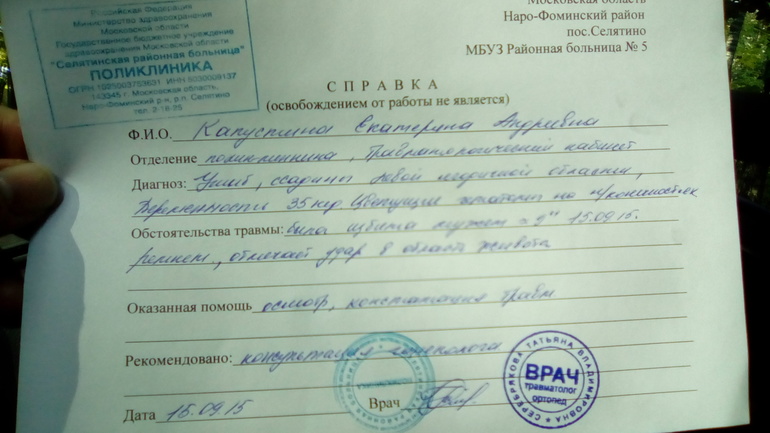 Российская Федерация
Министерство здравоохранения
Московской области
Государственное бюджетное учреждение
здравоохранения Московской области
"Селятинская районная больница"
ПОЛИКЛИНИКА
143345 г. Московская область,
Наро-Фоминский р-н, р.п. Селятино
тел. 2-16-25
Московская область
Наро-Фоминский район
пос.Селятино
МБУЗ Районная больница № 5
СПРАВКА
(освобождением от работы не является)
Ф.И.О. Капустина Екатерина
Отделение поликлиника, травматологический кабинет
Диагноз: Ушиб, ссадины левой области,
Беременность 35 нед гематомы на конечностях
Обстоятельства травмы: была избита мужем 15.09.15.
ремнем, отмечает удар в область живота
Оказанная помощь осмотр, констатация травм
Рекомендовано: консультация гинеколога
Дата 15.09.15 Врач
СЕРЕБРЯКОВА ТАТЬЯНА ВЛАДИМИРОВНА
ВРАЧ
травматолог
ортопед